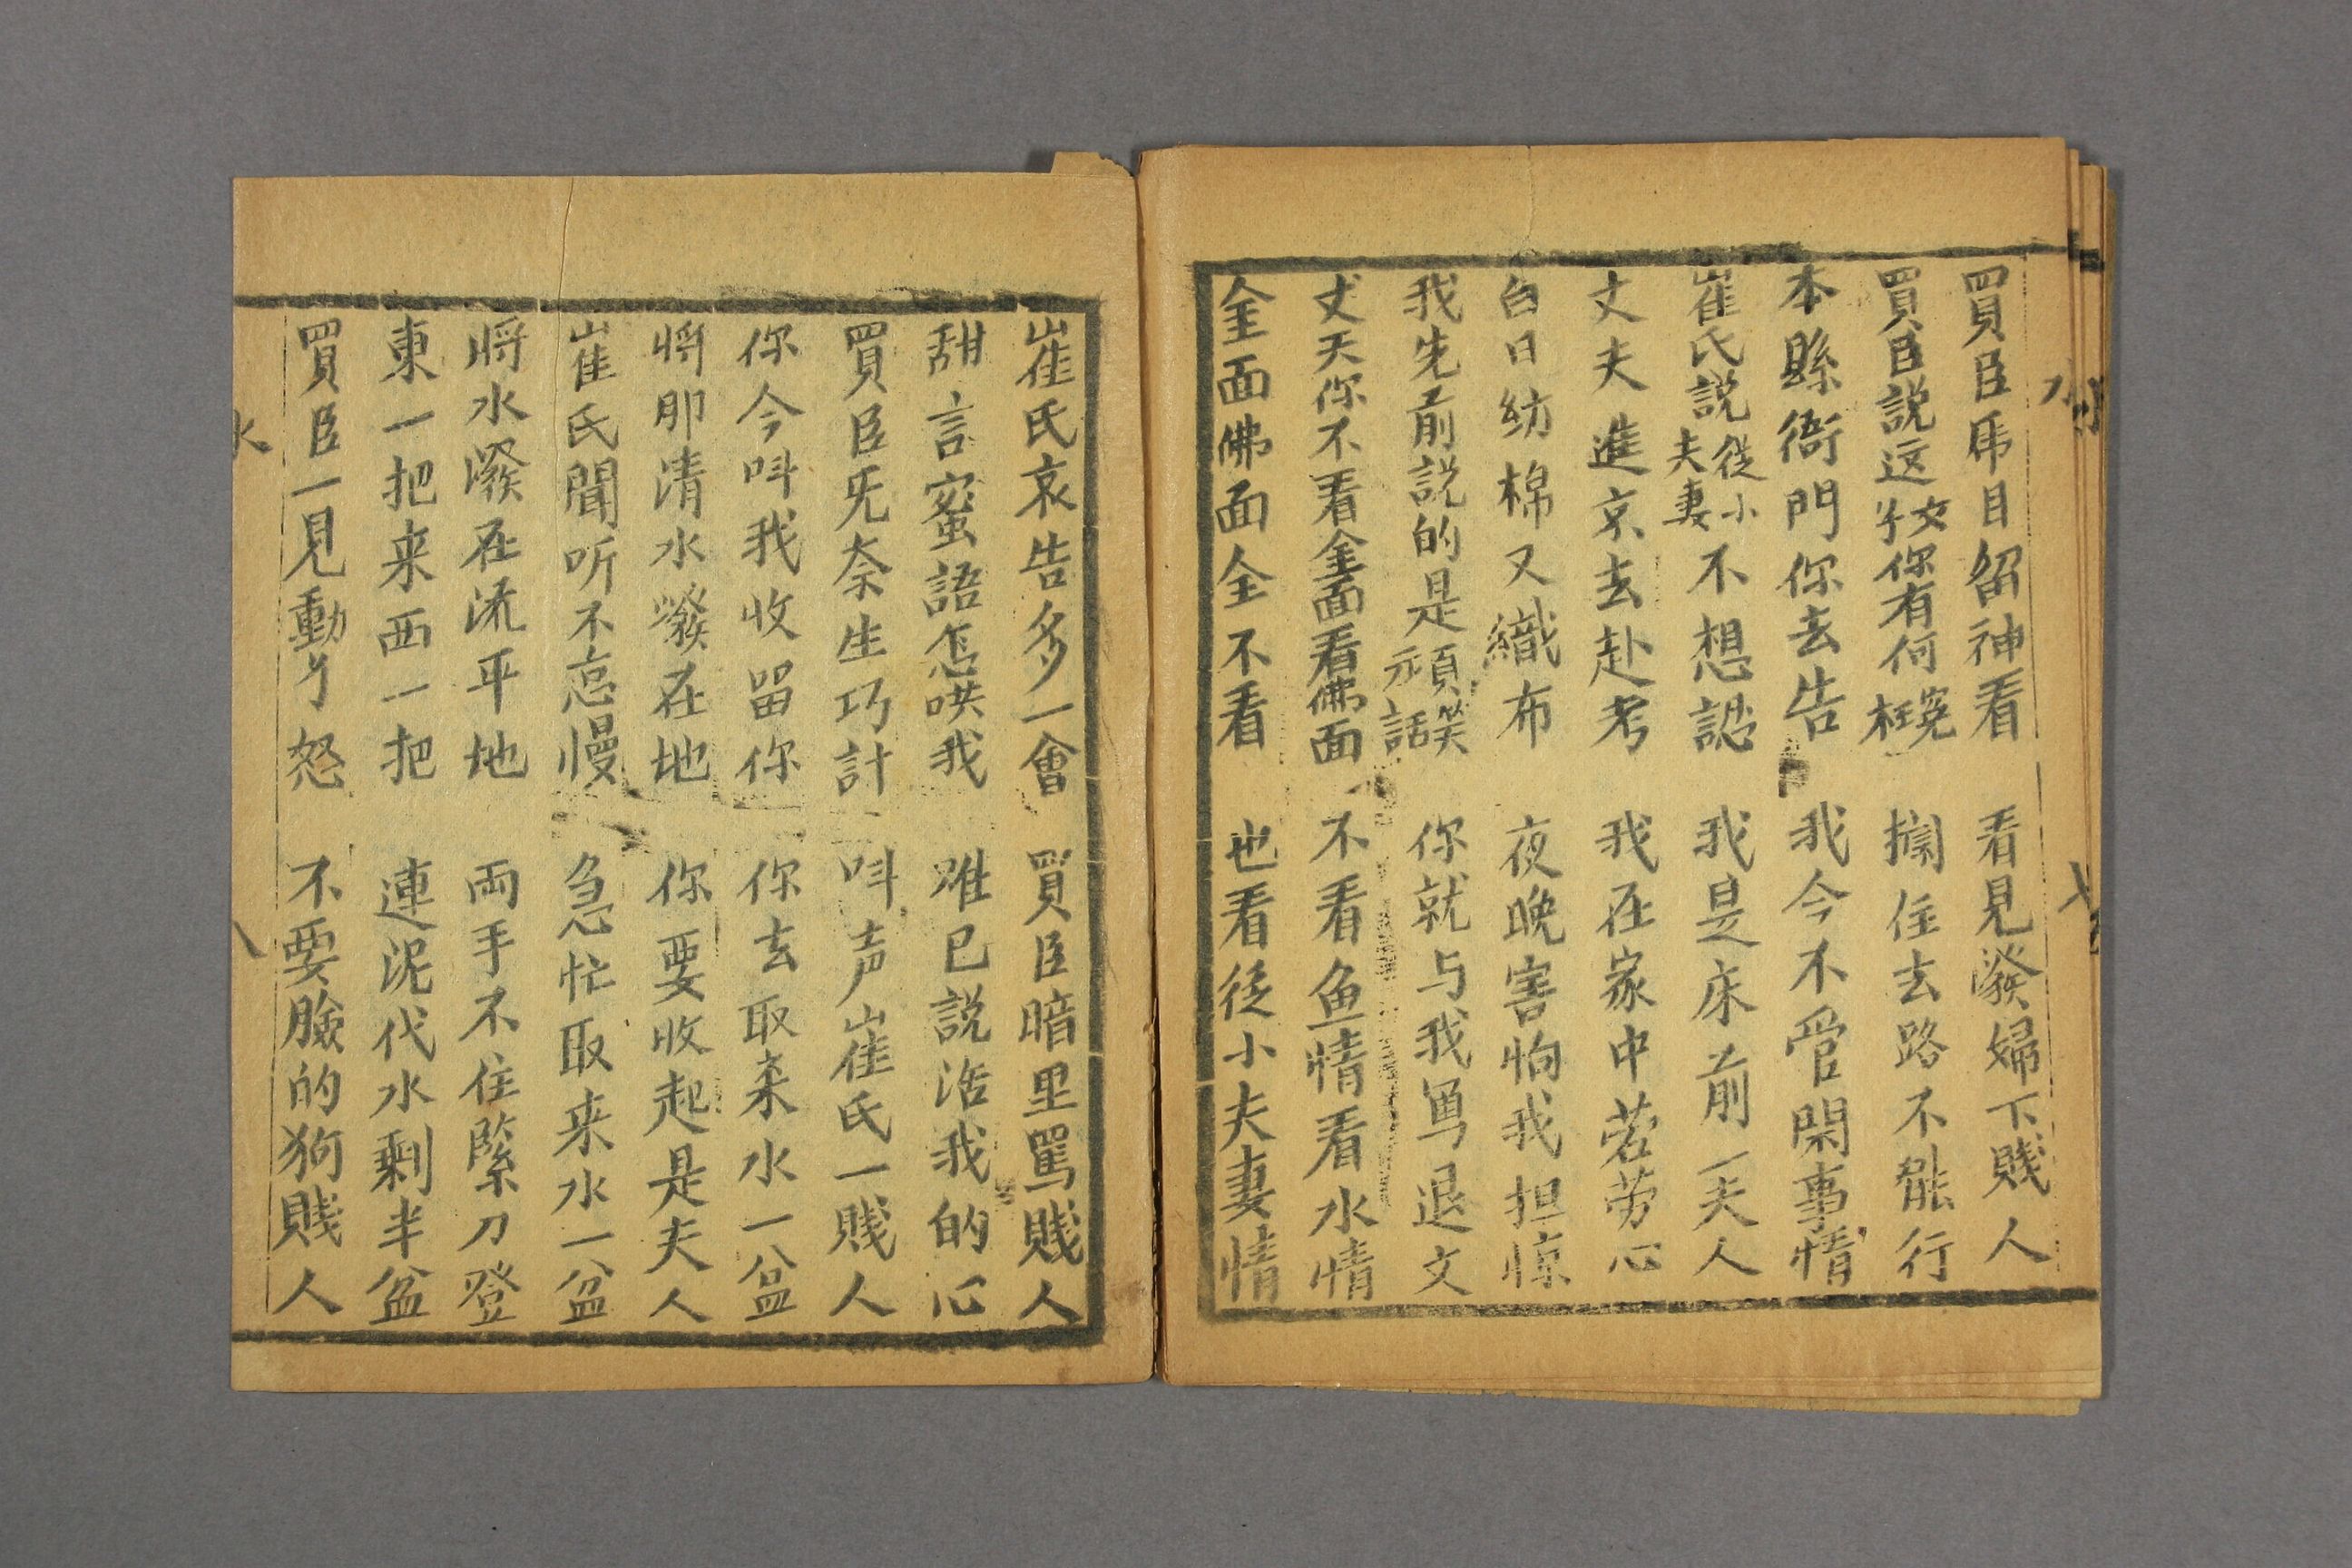 買臣馬目留神看　看見潑婦下賤人
買臣說这女子你有何冤枉　攔住去路不能行
本縣衙門你去告　我今不管閑事情
崔氏說從小夫妻不想認　我是床前一夫人
丈夫進京去赴考　我在家中苦劳心
白日紡棉又織布　夜晚害怕我担惊
我先前說的是頑笑話　你就与我寫退文
丈夫你不看金面看佛面　不看鱼情看水情
金面佛面全不看　也看從小夫妻情
崔氏哀告多一會　買臣暗里罵賤人
甜言蜜語怎哄我　难已說活我的心
買臣旡奈生巧計　呌声崔氏一賤人
你今呌我收留你　你去取来水一盆
將那清水潑在地　你要收起是夫人
崔氏聞听不怠慢　急忙取来水一盆
將水潑在流平地　両手不住緊刀登
東一把来西一把　連泥代水剩半盆
買臣一見動了怒　不要臉的狗賤人
水
八